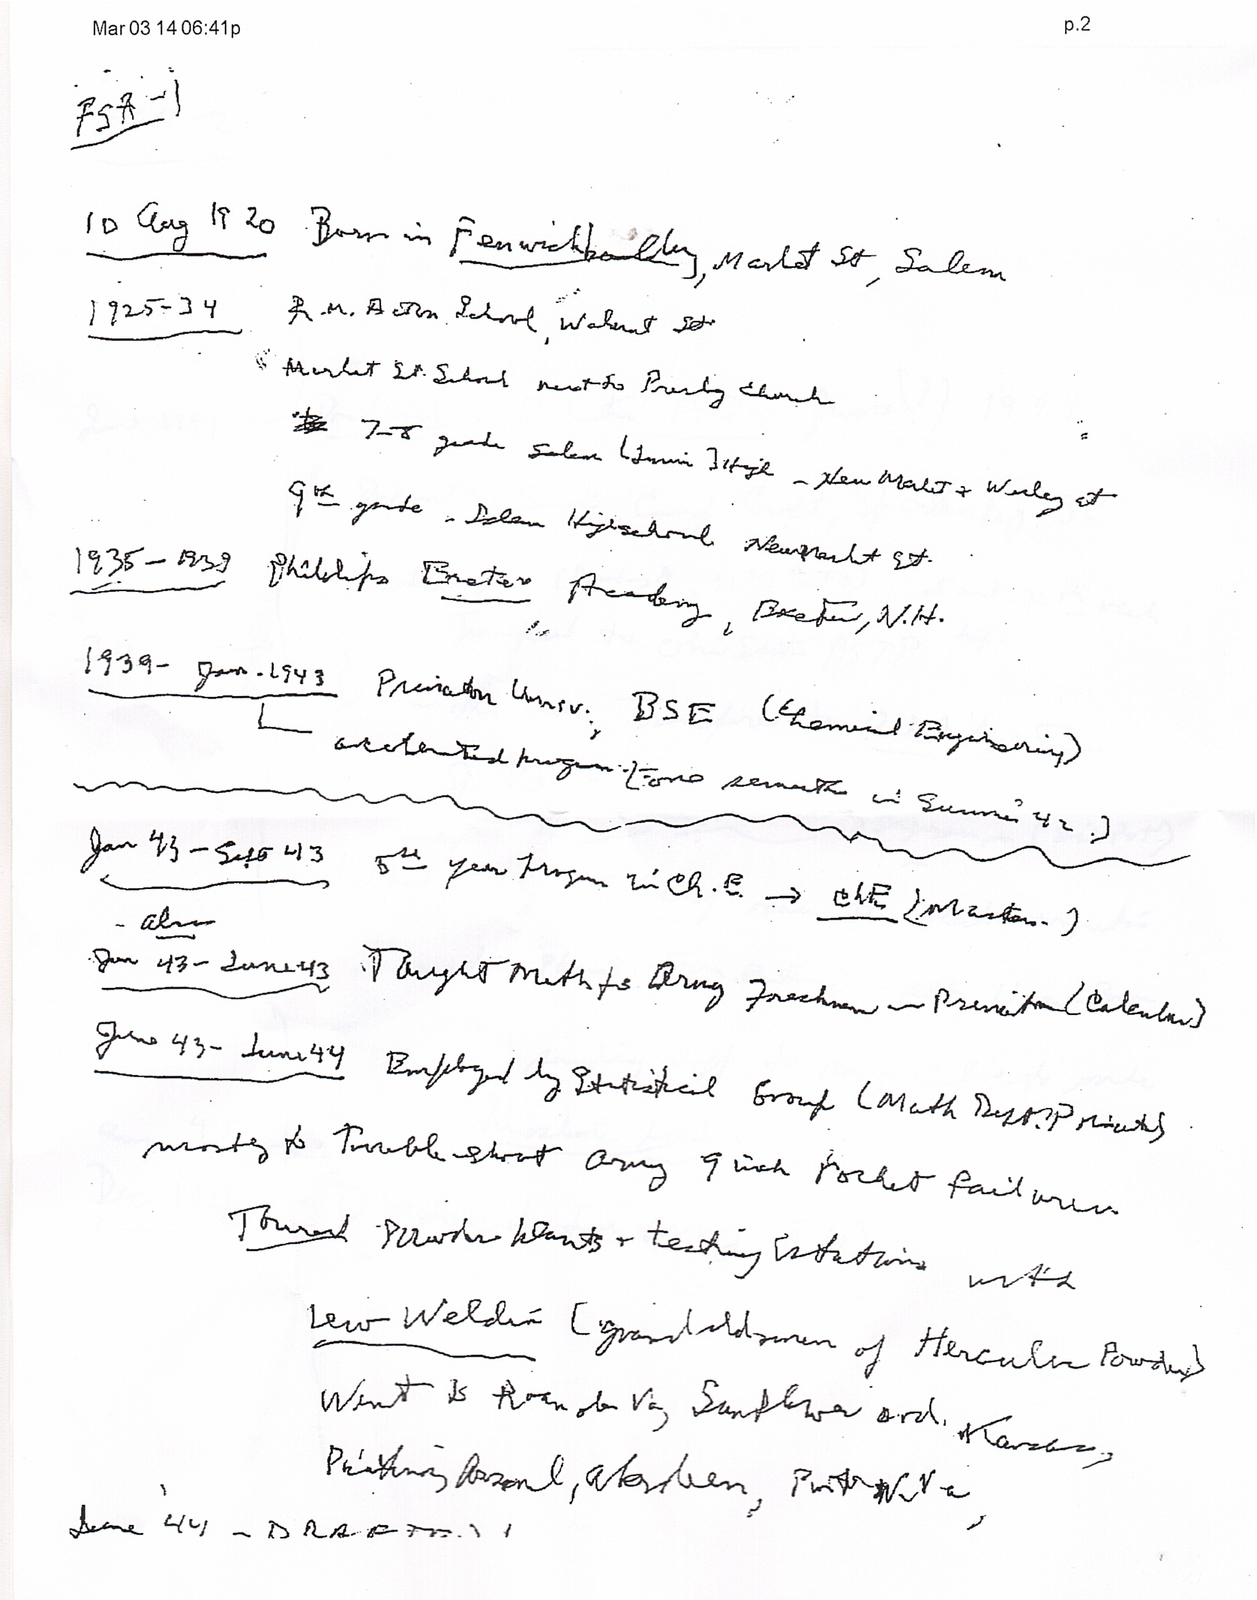 Mar 03 14 06:41p
p.2
FSA-1
10 Aug 1920 Born in Fenwick building, Market St, Salem
1925-34 R.M. Acton School, Walnut St
Market St. School next to Presby Church
7-8 grade Salem (Junior) High - New Market + Wesley st
9th grade - Salem High school New Market St.
1935-1939 Phillips Exeter Academy, Exeter, N.H.
1939- Jan. 1943 Princeton Univ., BSE (Chemical Engineering)
accelerated program. (one semester in Summer 42.)
Jan 43 - Sept 43 5th year Program in Ch. E. → ChE (Masters.)
- also
Jan 43 - June 43 Taught Math for Army Freshmen in Princeton (Calculus)
June 43 - June 44 Employed by Statistical Group (Math Dept. Princeton)
mostly to Trouble-shoot Army 9 inch rocket failures
Toured Powder plants + testing stations with
Lew Weldin (grand oldman of Hercules Powder)
Went to Roanoke Va, Sunflower ord. Kansas,
Picatinny Arsenal, Aberdeen, W. Va,
June 44 - DRAFTED!!